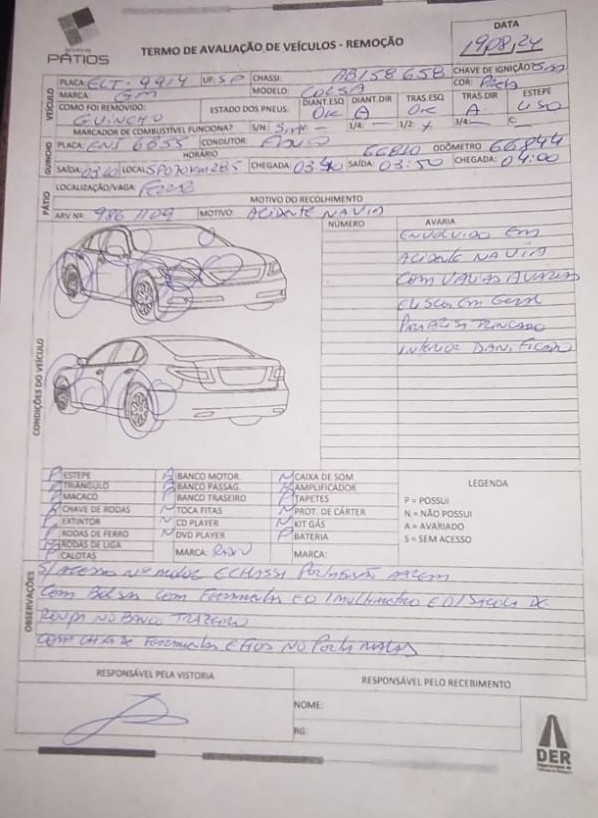 PÁTIOS
TERMO DE AVALIAÇÃO DE VEÍCULOS - REMOÇÃO
DATA
19,08,24
VEÍCULO
PLACA: UF: SP CHASSI: AB158658 CHAVE DE IGNIÇÃO:
MARCA: GM MODELO: CORSA COR: Preta
COMO FOI REMOVIDO: GUINCHO ESTADO DOS PNEUS:
DIANT.ESQ OK DIANT.DIR A TRAS.ESQ OK TRAS.DIR A ESTEPE USO
MARCADOR DE COMBUSTÍVEL FUNCIONA? S/N: Sim 1/4: 1/2: 3/4: C
GUINCHO
PLACA: 6655 CONDUTOR: 66810 ODÔMETRO 66844
HORÁRIO
SAÍDA: LOCAL: CHEGADA: 03:40 SAÍDA: 03:50 CHEGADA: 04:00
PÁTIO
LOCALIZAÇÃO/VAGA:
MOTIVO DO RECOLHIMENTO
ARV Nº: 9861109 MOTIVO: ACIDENTE NA VIA
CONDIÇÕES DO VEÍCULO
NÚMERO AVARIA
ENVOLVIDO EM
ACIDENTE NA VIA
COM VARIAS AVARIAS
E RISCOS EM GERAL
PARABRISA TRINCADO
INTERIOR DANIFICADO
ESTEPE
TRIÂNGULO
MACACO
CHAVE DE RODAS
EXTINTOR
RODAS DE FERRO
RODAS DE LIGA
CALOTAS
A BANCO MOTOR.
BANCO PASSAG.
P BANCO TRASEIRO
N TOCA FITAS
N CD PLAYER
N DVD PLAYER
MARCA: RADIO
N CAIXA DE SOM
N AMPLIFICADOR
P TAPETES
N PROT. DE CÁRTER
N KIT GÁS
P BATERIA
MARCA:
LEGENDA
P = POSSUI
N = NÃO POSSUI
A = AVARIADO
S = SEM ACESSO
OBSERVAÇÕES
S/ ACESSO Nº MOTOR E CHASSI
Com Bolsa com Ferramentas E 01 Multimetro E 01 Sacola DE
ROUPA NO BANCO TRAZEIRO
COM CAIXA DE Ferramentas E Fios NO Porta MALAS
RESPONSÁVEL PELA VISTORIA
RESPONSÁVEL PELO RECEBIMENTO
NOME:
RG:
DER